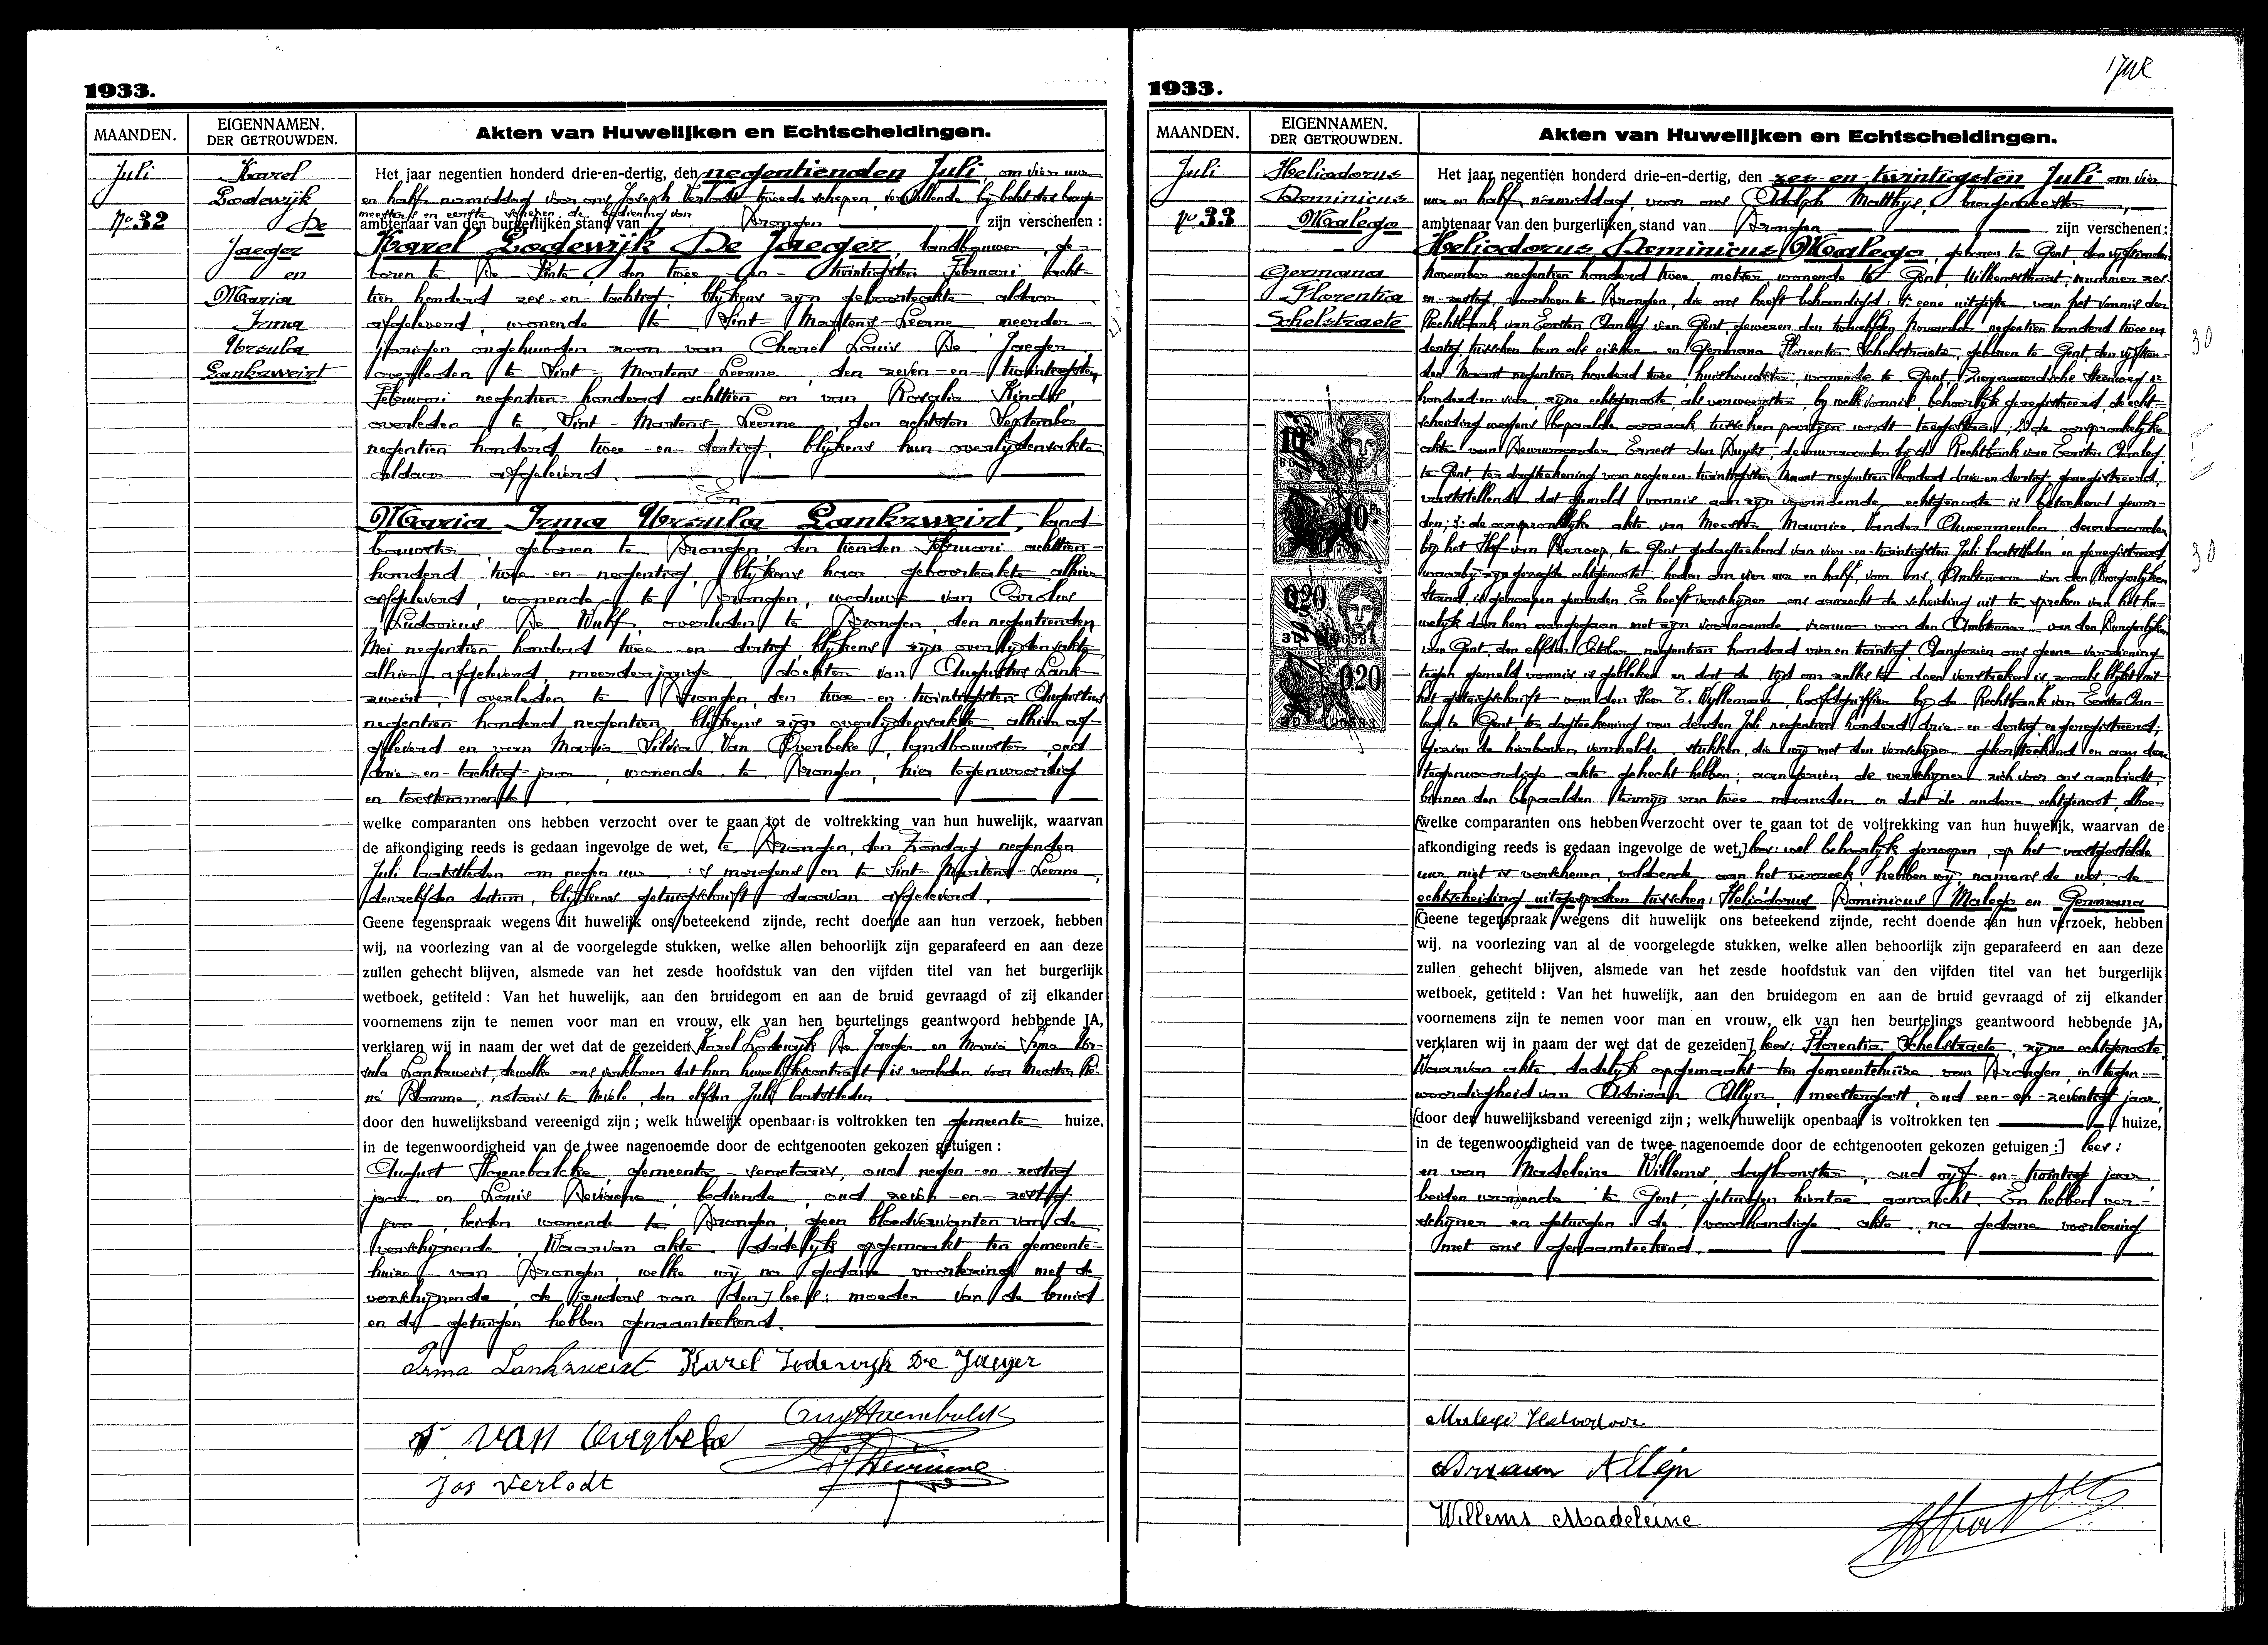 1933.
MAANDEN.
EIGENNAMEN.
DER GETROUWDEN.
Akten van Huwelijken en Echtscheidingen.
Juli
No 32
Karel
Lodewijk
De
Jaeger
en
Maria
Irma
Ursula
Lankzweirt
Het jaar negentien honderd drie-en-dertig, den negentienden Juli, om vier uur
en half namiddag voor ons Joseph Verlodt tweede schepen, vervullende bij belet des burge-
meesters en eerste schepen, de bediening van
ambtenaar van den burgerlijken stand van Drongen zijn verschenen:
Karel Lodewijk De Jaeger, landbouwer, ge-
boren te De Pinte, den twee-en-twintigsten Februari acht-
tien honderd zes-en-tachtig, blijkens zijn geboorteakte aldaar
afgeleverd, wonende te Sint-Martens-Leerne meerder-
jarigen ongehuwden zoon van Charel Louis De Jaeger
overleden te Sint-Martens-Leerne, den zeven-en-twintigsten
Februari negentien honderd achttien en van Rosalie
overleden te Sint-Martens-Leerne, den achtsten September
negentien honderd twee-en-dertig, blijkens hun overlijdensakten
aldaar afgeleverd.
En
Maria Irma Ursula Lankzweirt, land-
bouwster, geboren te Drongen, den tienden Februari achttien-
honderd twee-en-negentig, blijkens haar geboorteakte alhier
afgeleverd, wonende te Drongen, weduwe van Carolus
Ludovicus De Wulf, overleden te Drongen, den negentienden
Mei negentien honderd twee-en-dertig, blijkens zijn overlijdensakte
alhier afgeleverd, meerderjarige dochter van Augustus Lank-
zweirt, overleden te Drongen, den twee-en-twintigsten Augustus
negentien honderd negentien, blijkens zijn overlijdensakte alhier af-
geleverd en van Maria Silvia Van Overbeke, landbouwster, oud
drie-en-tachtig jaar, wonende te Drongen, hier tegenwoordig
en toestemmende.
welke comparanten ons hebben verzocht over te gaan tot de voltrekking van hun huwelijk, waarvan
de afkondiging reeds is gedaan ingevolge de wet, te Drongen, den Zondag negenden
Juli laatstleden om negen uur 's morgens en te Sint-Martens-Leerne,
denzelfden datum, blijkens getuigschrift daarvan afgeleverd.
Geene tegenspraak wegens dit huwelijk ons beteekend zijnde, recht doende aan hun verzoek, hebben
wij, na voorlezing van al de voorgelegde stukken, welke allen behoorlijk zijn geparafeerd en aan deze
zullen gehecht blijven, alsmede van het zesde hoofdstuk van den vijfden titel van het burgerlijk
wetboek, getiteld: Van het huwelijk, aan den bruidegom en aan de bruid gevraagd of zij elkander
voornemens zijn te nemen voor man en vrouw, elk van hen beurtelings geantwoord hebbende JA,
verklaren wij in naam der wet dat de gezeiden Karel Lodewijk De Jaeger en Maria Irma Ur-
sula Lankzweirt, dewelke ons verklaren dat hun huwelijkscontract is verleden voor Meester Re-
né Blomme, notaris te Nevele, den elfden Juli laatstleden.
door den huwelijksband vereenigd zijn; welk huwelijk openbaar is voltrokken ten gemeente huize,
in de tegenwoordigheid van de twee nagenoemde door de echtgenooten gekozen getuigen:
August Haenebalcke, gemeente-secretaris, oud negen-en-zestig
jaar en Louis Deviaene, bediende, oud zeven-en-zestig
jaar, beiden wonende te Drongen, geen bloedverwanten van de
verschijnende. Waarvan akte dadelijk opgemaakt ten gemeente-
huize van Drongen, welke wij na gedane voorlezing met de
verschijnende, de [ouders van den] lees: moeder van de bruid
en de getuigen hebben genaamteekend.
Irma Lankzweirt Karel Lodewijk De Jaeger
Aug Haenebalcke
S Van Overbeke
Jos Verlodt
1933.
MAANDEN.
EIGENNAMEN.
DER GETROUWDEN.
Akten van Huwelijken en Echtscheidingen.
Juli
No 33
Heliodorus
Dominicus
Malego
Germana
Florentia
Schelstraete
Het jaar negentien honderd drie-en-dertig, den zes-en-twintigsten Juli om vier
uur en half namiddag, voor ons Adolph Matthys, burgemeester,
ambtenaar van den burgerlijken stand van Drongen zijn verschenen:
Heliodorus Dominicus Malego, geboren te Gent, den vijftienden
November negentien honderd twee, metser, wonende te Gent, Wilkensstraat, nummer zes-
en-zestig, voorheen te Drongen, die ons heeft behandigd, 1: eene uitgifte van het vonnis der
Rechtbank van Eersten Aanleg van Gent, gewezen den twaalfden November negentien honderd twee en
dertig, tusschen hem als eischer en Germana Florentia Schelstraete, geboren te Gent, den vijftien-
den Maart negentien honderd twee, huishoudster, wonende te Gent, Zwynaardsche Steenweg nr
honderd en vier, zijne echtgenoote, als verweerster, bij welk vonnis behoorlijk geregistreerd, de echt-
scheiding wegens bepaalde oorzaak tusschen partijen wordt toegestaan; 2: de oorspronkelijke
akte van Deurwaarder Ernest den Duyts, deurwaarder bij de Rechtbank van Eersten Aanleg
te Gent, ter dagteekening van negen-en-twintigsten Maart negentien honderd drie-en-dertig, geregistreerd,
vaststellende dat gemeld vonnis aan zijn voornoemde echtgenoote is beteekend gewor-
den; 3: de oorspronkelijke akte van Meester Maurice Vander Auwermeulen, deurwaarder
bij het Hof van Beroep, te Gent, gedagteekend van vier-en-twintigsten Juli laatstleden en geregistreerd
waarbij zijn gezegde echtgenoote, heden om vier uur en half, voor ons, Ambtenaar van den Burgerlijken
Stand, is geroepen geworden. En heeft verschijner ons verzocht de scheiding uit te spreken van het hu-
welijk door hem aangegaan met zijn voornoemde vrouw voor den Ambtenaar van den Burgerlijken
van Gent, den elfden October negentien honderd vier en twintig. Aangezien ons geene voorziening
tegen gemeld vonnis is gebleken en dat de tijd om zulks te doen verstreken is zooals blijkt uit
het getuigschrift van den Heer E. Wylleman, hoofdgriffier bij de Rechtbank van Eersten Aan-
leg te Gent ter dagteekening van derden Juli negentien honderd drie-en-dertig en geregistreerd;
Gezien de hierboven vermelde stukken, die wij met den verschijner gekenteekend en aan deze
tegenwoordige akte gehecht hebben; aangezien de verschijner zich voor ons aanbiedt,
binnen den bepaalden termijn van twee maanden en dat de andere echtgenoot, alhoe-
[welke comparanten ons hebben verzocht over te gaan tot de voltrekking van hun huwelijk, waarvan de
afkondiging reeds is gedaan ingevolge de wet,] lees: wel behoorlijk geroepen, op het vastgestelde
uur niet is verschenen, voldoende aan het verzoek, hebben wij, namens de wet, de
echtscheiding uitgesproken tusschen: Heliodorus Dominicus Malego en Germana
[Geene tegenspraak wegens dit huwelijk ons beteekend zijnde, recht doende aan hun verzoek, hebben
wij, na voorlezing van al de voorgelegde stukken, welke allen behoorlijk zijn geparafeerd en aan deze
zullen gehecht blijven, alsmede van het zesde hoofdstuk van den vijfden titel van het burgerlijk
wetboek, getiteld: Van het huwelijk, aan den bruidegom en aan de bruid gevraagd of zij elkander
voornemens zijn te nemen voor man en vrouw, elk van hen beurtelings geantwoord hebbende JA,
verklaren wij in naam der wet dat de gezeiden] lees: Florentia Schelstraete, zijne echtgenoote.
Waarvan akte, dadelijk opgemaakt ten gemeentehuize van Drongen, in tegen-
woordigheid van Adriaan Allyn, meestergast, oud een-en-zeventig jaar,
[door den huwelijksband vereenigd zijn; welk huwelijk openbaar is voltrokken ten huize,
in de tegenwoordigheid van de twee nagenoemde door de echtgenooten gekozen getuigen:] lees:
en van Madeleine Willems, dagloonster, oud vijf-en-twintig jaar,
beiden wonende te Gent, getuigen hiertoe aanzocht. En hebben ver-
schijner en getuigen de voorhandige akte, na gedane voorlezing
met ons genaamteekend.
10
10 Fr
0.20
0.20
30
30
Malego Heliodoor
Adriaan Allijn
Willems Madeleine